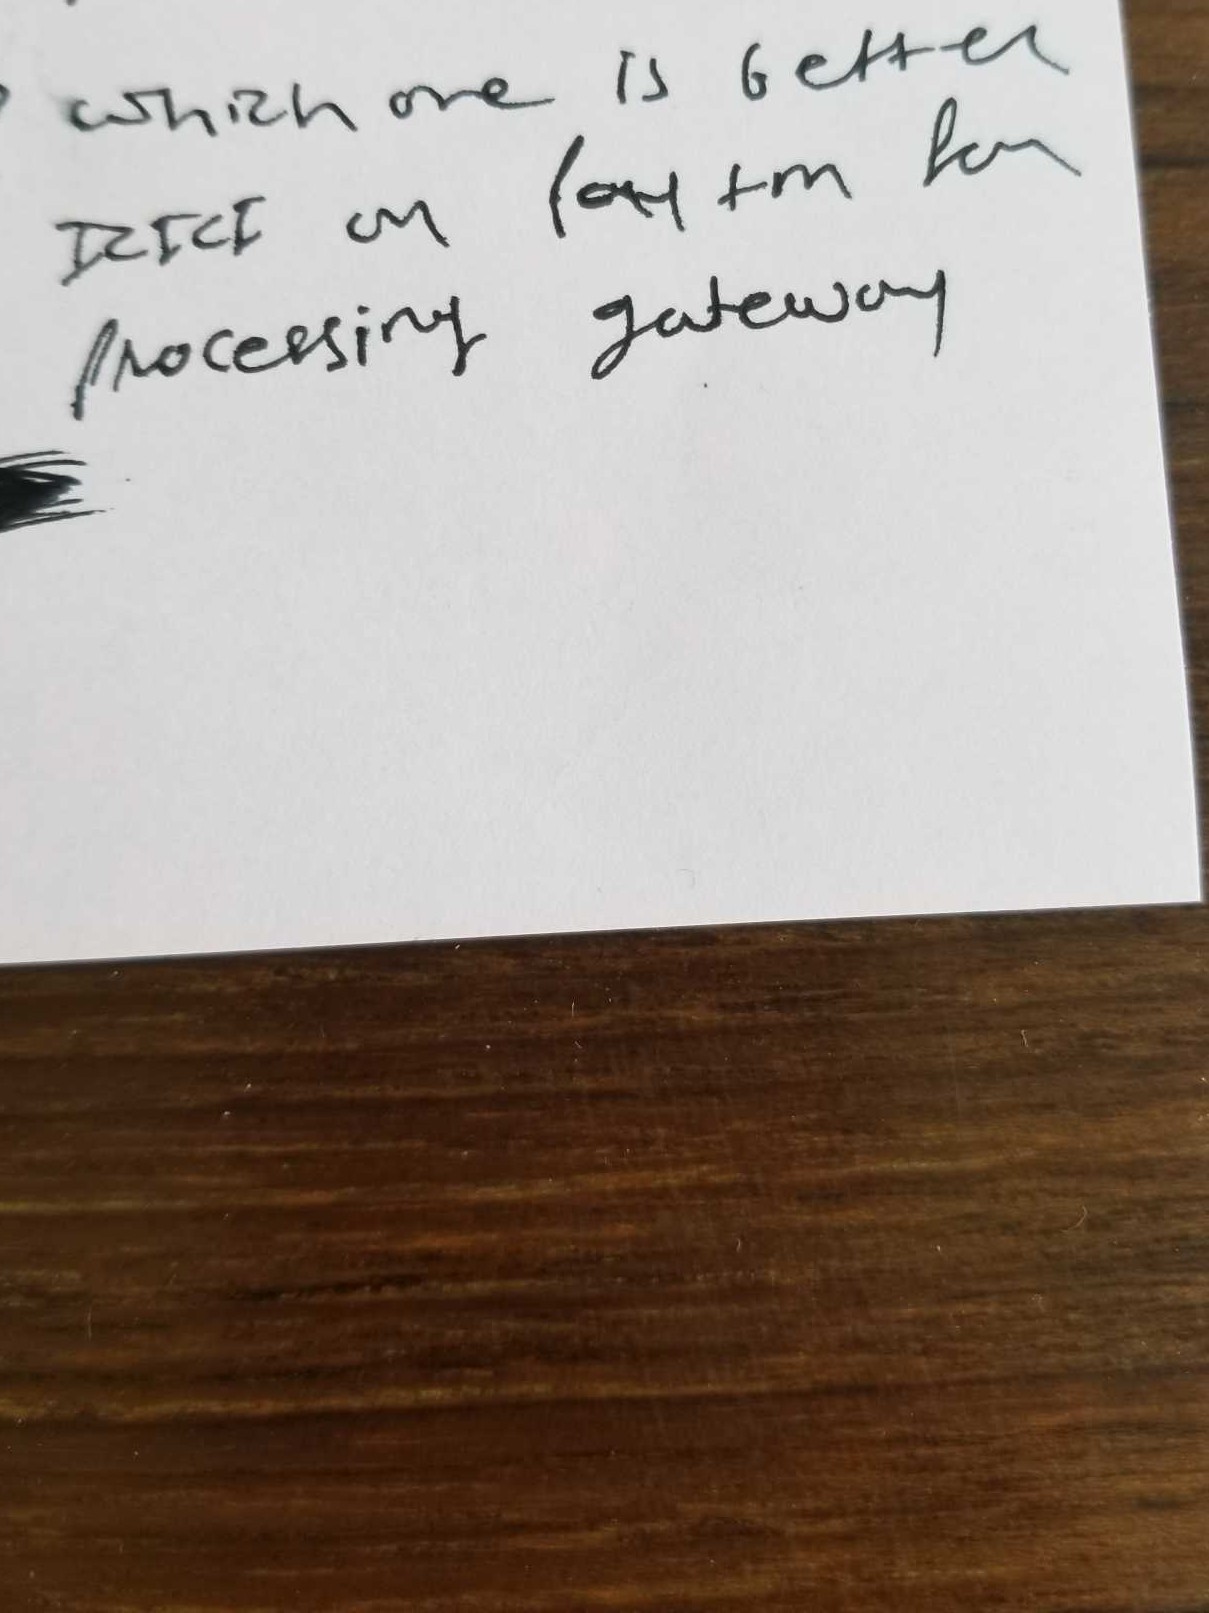 which one is better
ICICI or Paytm for
processing gateway